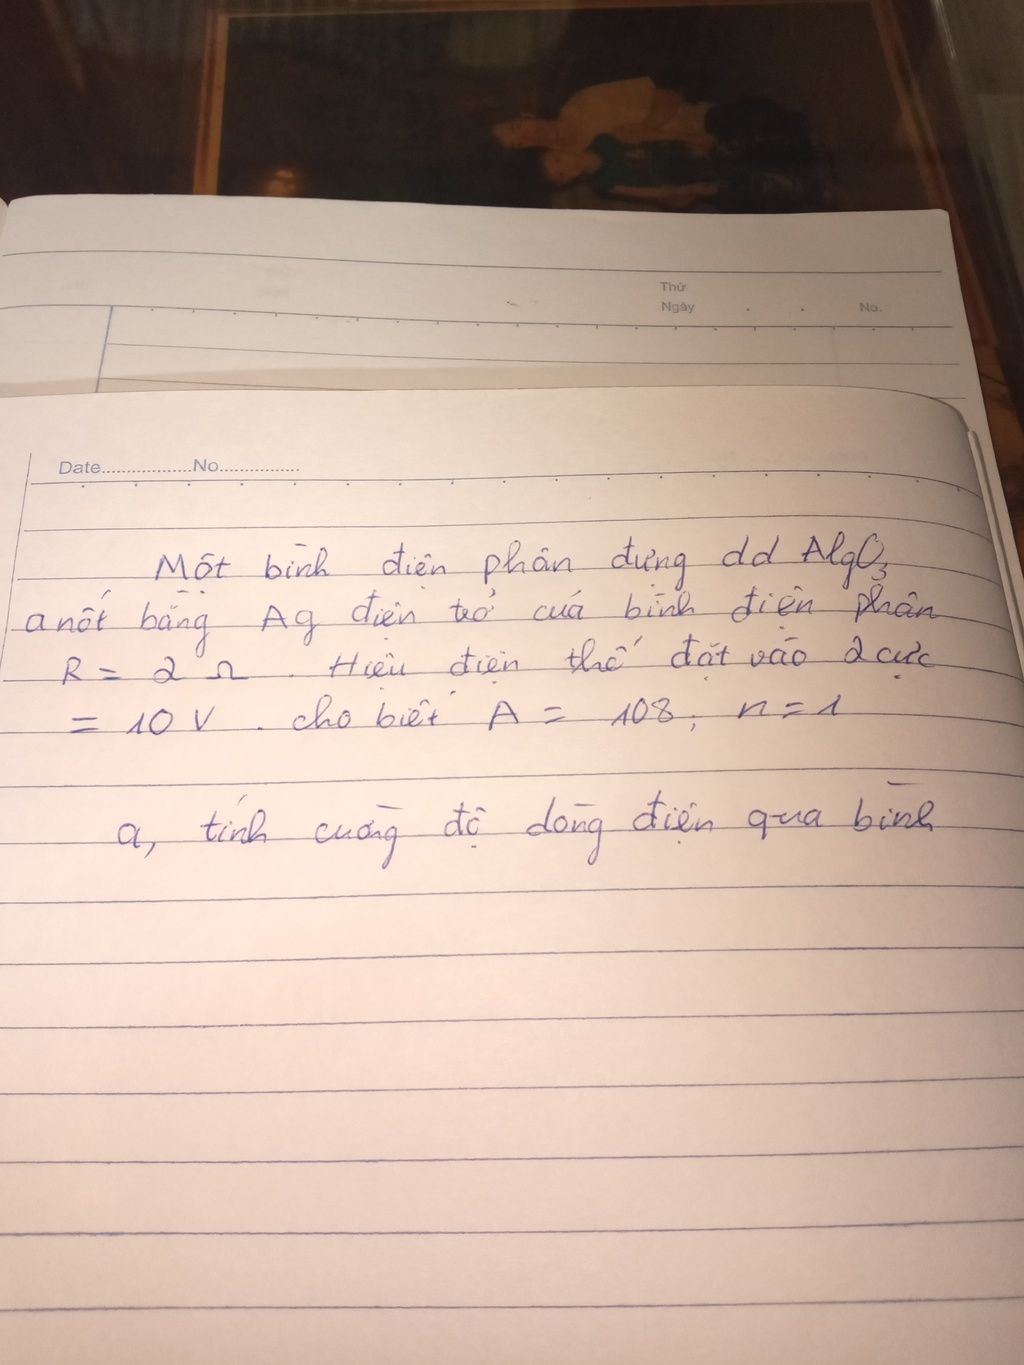 Thứ
Ngày . . No.
Date.................No...............
Một bình điện phân đựng dd AlgO3
anốt bằng Ag điện trở của bình điện phân
R = 2 Ω . Hiệu điện thế đặt vào 2 cực
= 10 V . cho biết A = 108; n = 1
a, tính cường độ dòng điện qua bình